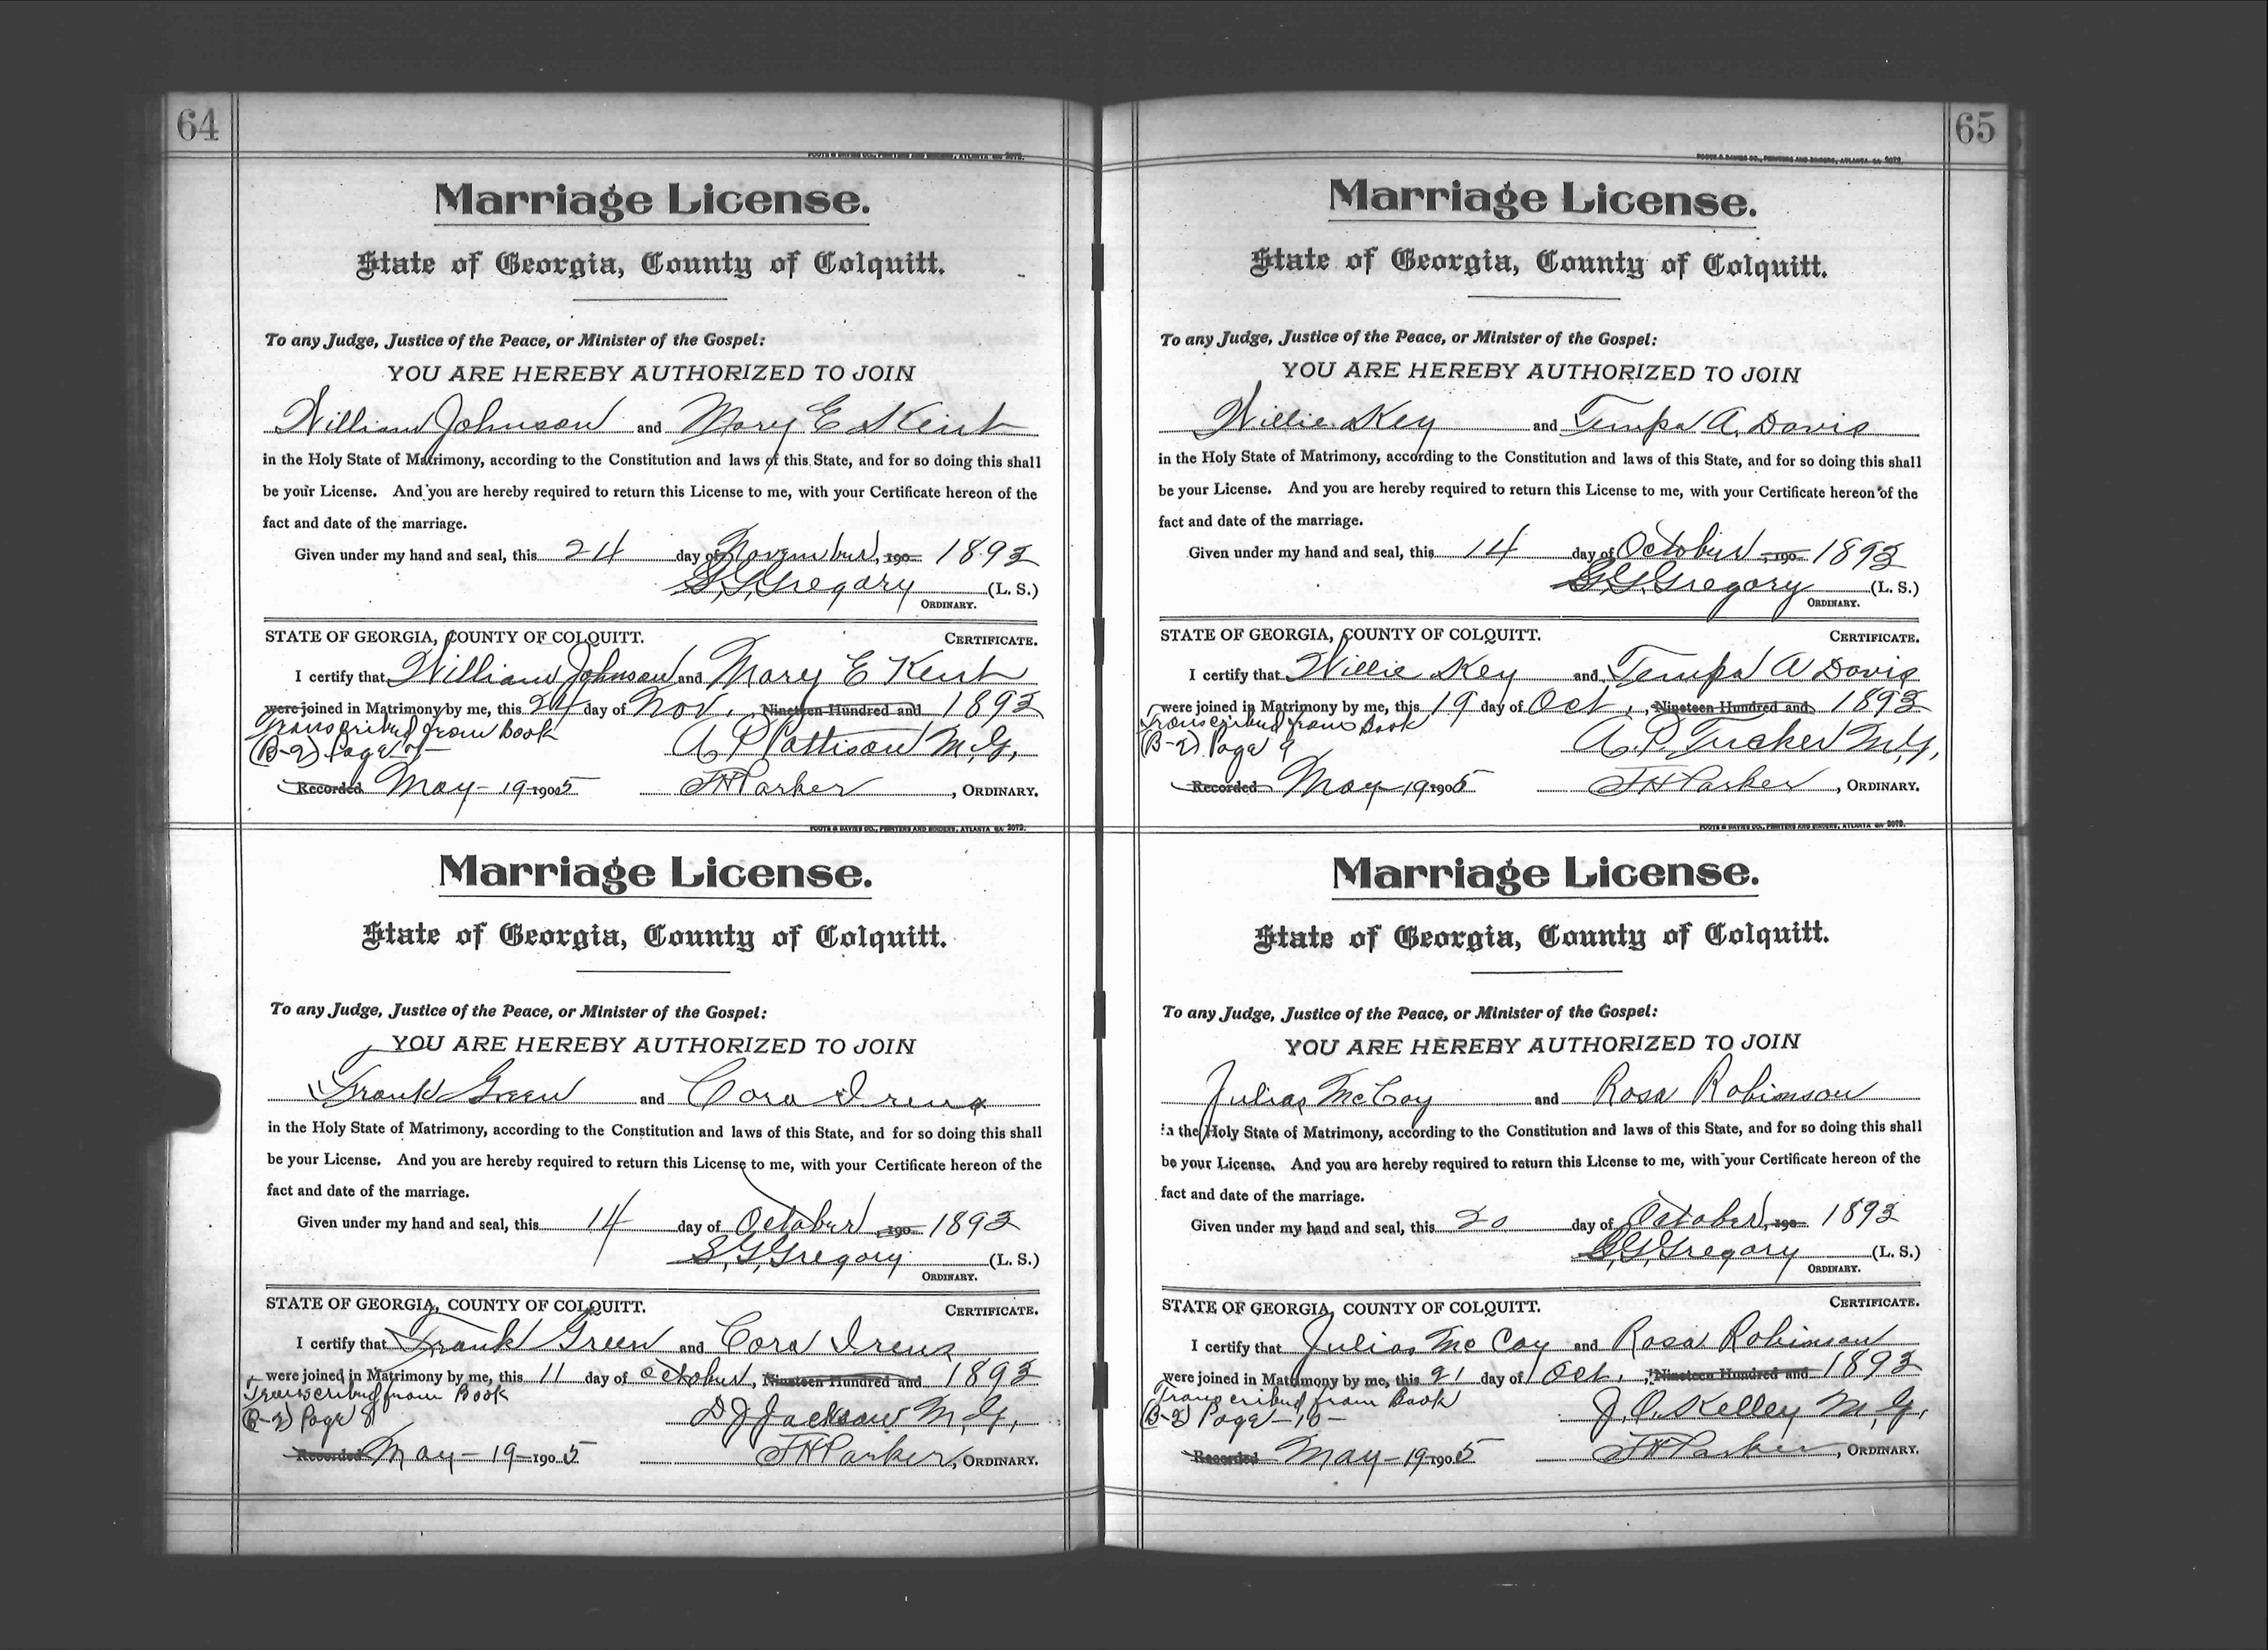 64
FOOTE & DAVIES CO., PRINTERS AND BINDERS, ATLANTA GA 3072.
Marriage License.
State of Georgia, County of Colquitt.
To any Judge, Justice of the Peace, or Minister of the Gospel:
YOU ARE HEREBY AUTHORIZED TO JOIN
William Johnson and Mary E Kent
in the Holy State of Matrimony, according to the Constitution and laws of this State, and for so doing this shall
be your License. And you are hereby required to return this License to me, with your Certificate hereon of the
fact and date of the marriage.
Given under my hand and seal, this 24 day of November, 190 1893
G. G. Gregory (L. S.)
ORDINARY.
STATE OF GEORGIA, COUNTY OF COLQUITT. CERTIFICATE.
I certify that William Johnson and Mary E Kent
were joined in Matrimony by me, this 24 day of Nov. Nineteen Hundred and 1893
Transcribed from Book
(B-2) Page
A. P. Pattison M. G.
Recorded May - 19 - 1905 J H Parker, ORDINARY.
FOOTE & DAVIES CO., PRINTERS AND BINDERS, ATLANTA GA 3072.
Marriage License.
State of Georgia, County of Colquitt.
To any Judge, Justice of the Peace, or Minister of the Gospel:
YOU ARE HEREBY AUTHORIZED TO JOIN
Frank Green and Cora Irens
in the Holy State of Matrimony, according to the Constitution and laws of this State, and for so doing this shall
be your License. And you are hereby required to return this License to me, with your Certificate hereon of the
fact and date of the marriage.
Given under my hand and seal, this 14 day of October 190 1893
G. G. Gregory (L. S.)
ORDINARY.
STATE OF GEORGIA, COUNTY OF COLQUITT. CERTIFICATE.
I certify that Frank Green and Cora Irens
were joined in Matrimony by me, this 11 day of October, Nineteen Hundred and 1893
Transcribed from Book
(B-2) Page 8
D J Jackson M. G.
Recorded May - 19 - 1905 J H Parker, ORDINARY.
65
FOOTE & DAVIES CO., PRINTERS AND BINDERS, ATLANTA GA 3072.
Marriage License.
State of Georgia, County of Colquitt.
To any Judge, Justice of the Peace, or Minister of the Gospel:
YOU ARE HEREBY AUTHORIZED TO JOIN
Willie Key and Tempa A. Davis
in the Holy State of Matrimony, according to the Constitution and laws of this State, and for so doing this shall
be your License. And you are hereby required to return this License to me, with your Certificate hereon of the
fact and date of the marriage.
Given under my hand and seal, this 14 day of October, 190 1893
G. G. Gregory (L. S.)
ORDINARY.
STATE OF GEORGIA, COUNTY OF COLQUITT. CERTIFICATE.
I certify that Willie Key and Tempa A Davis
were joined in Matrimony by me, this 19 day of Oct., Nineteen Hundred and 1893
Transcribed from Book
(B-2) Page 9
A. P. Tucker M. G.
Recorded May - 19 1905 J H Parker, ORDINARY.
FOOTE & DAVIES CO., PRINTERS AND BINDERS, ATLANTA GA 3072.
Marriage License.
State of Georgia, County of Colquitt.
To any Judge, Justice of the Peace, or Minister of the Gospel:
YOU ARE HEREBY AUTHORIZED TO JOIN
Julias McCoy and Rosa Robinson
in the Holy State of Matrimony, according to the Constitution and laws of this State, and for so doing this shall
be your License. And you are hereby required to return this License to me, with your Certificate hereon of the
fact and date of the marriage.
Given under my hand and seal, this 20 day of October, 190 1893
G. G. Gregory (L. S.)
ORDINARY.
STATE OF GEORGIA, COUNTY OF COLQUITT. CERTIFICATE.
I certify that Julias McCoy and Rosa Robinson
were joined in Matrimony by me, this 21 day of Oct., Nineteen Hundred and 1893
Transcribed from Book
(B-2) Page - 10 -
J. O. Kelley M. G.
Recorded May - 19 - 1905 J H Parker, ORDINARY.